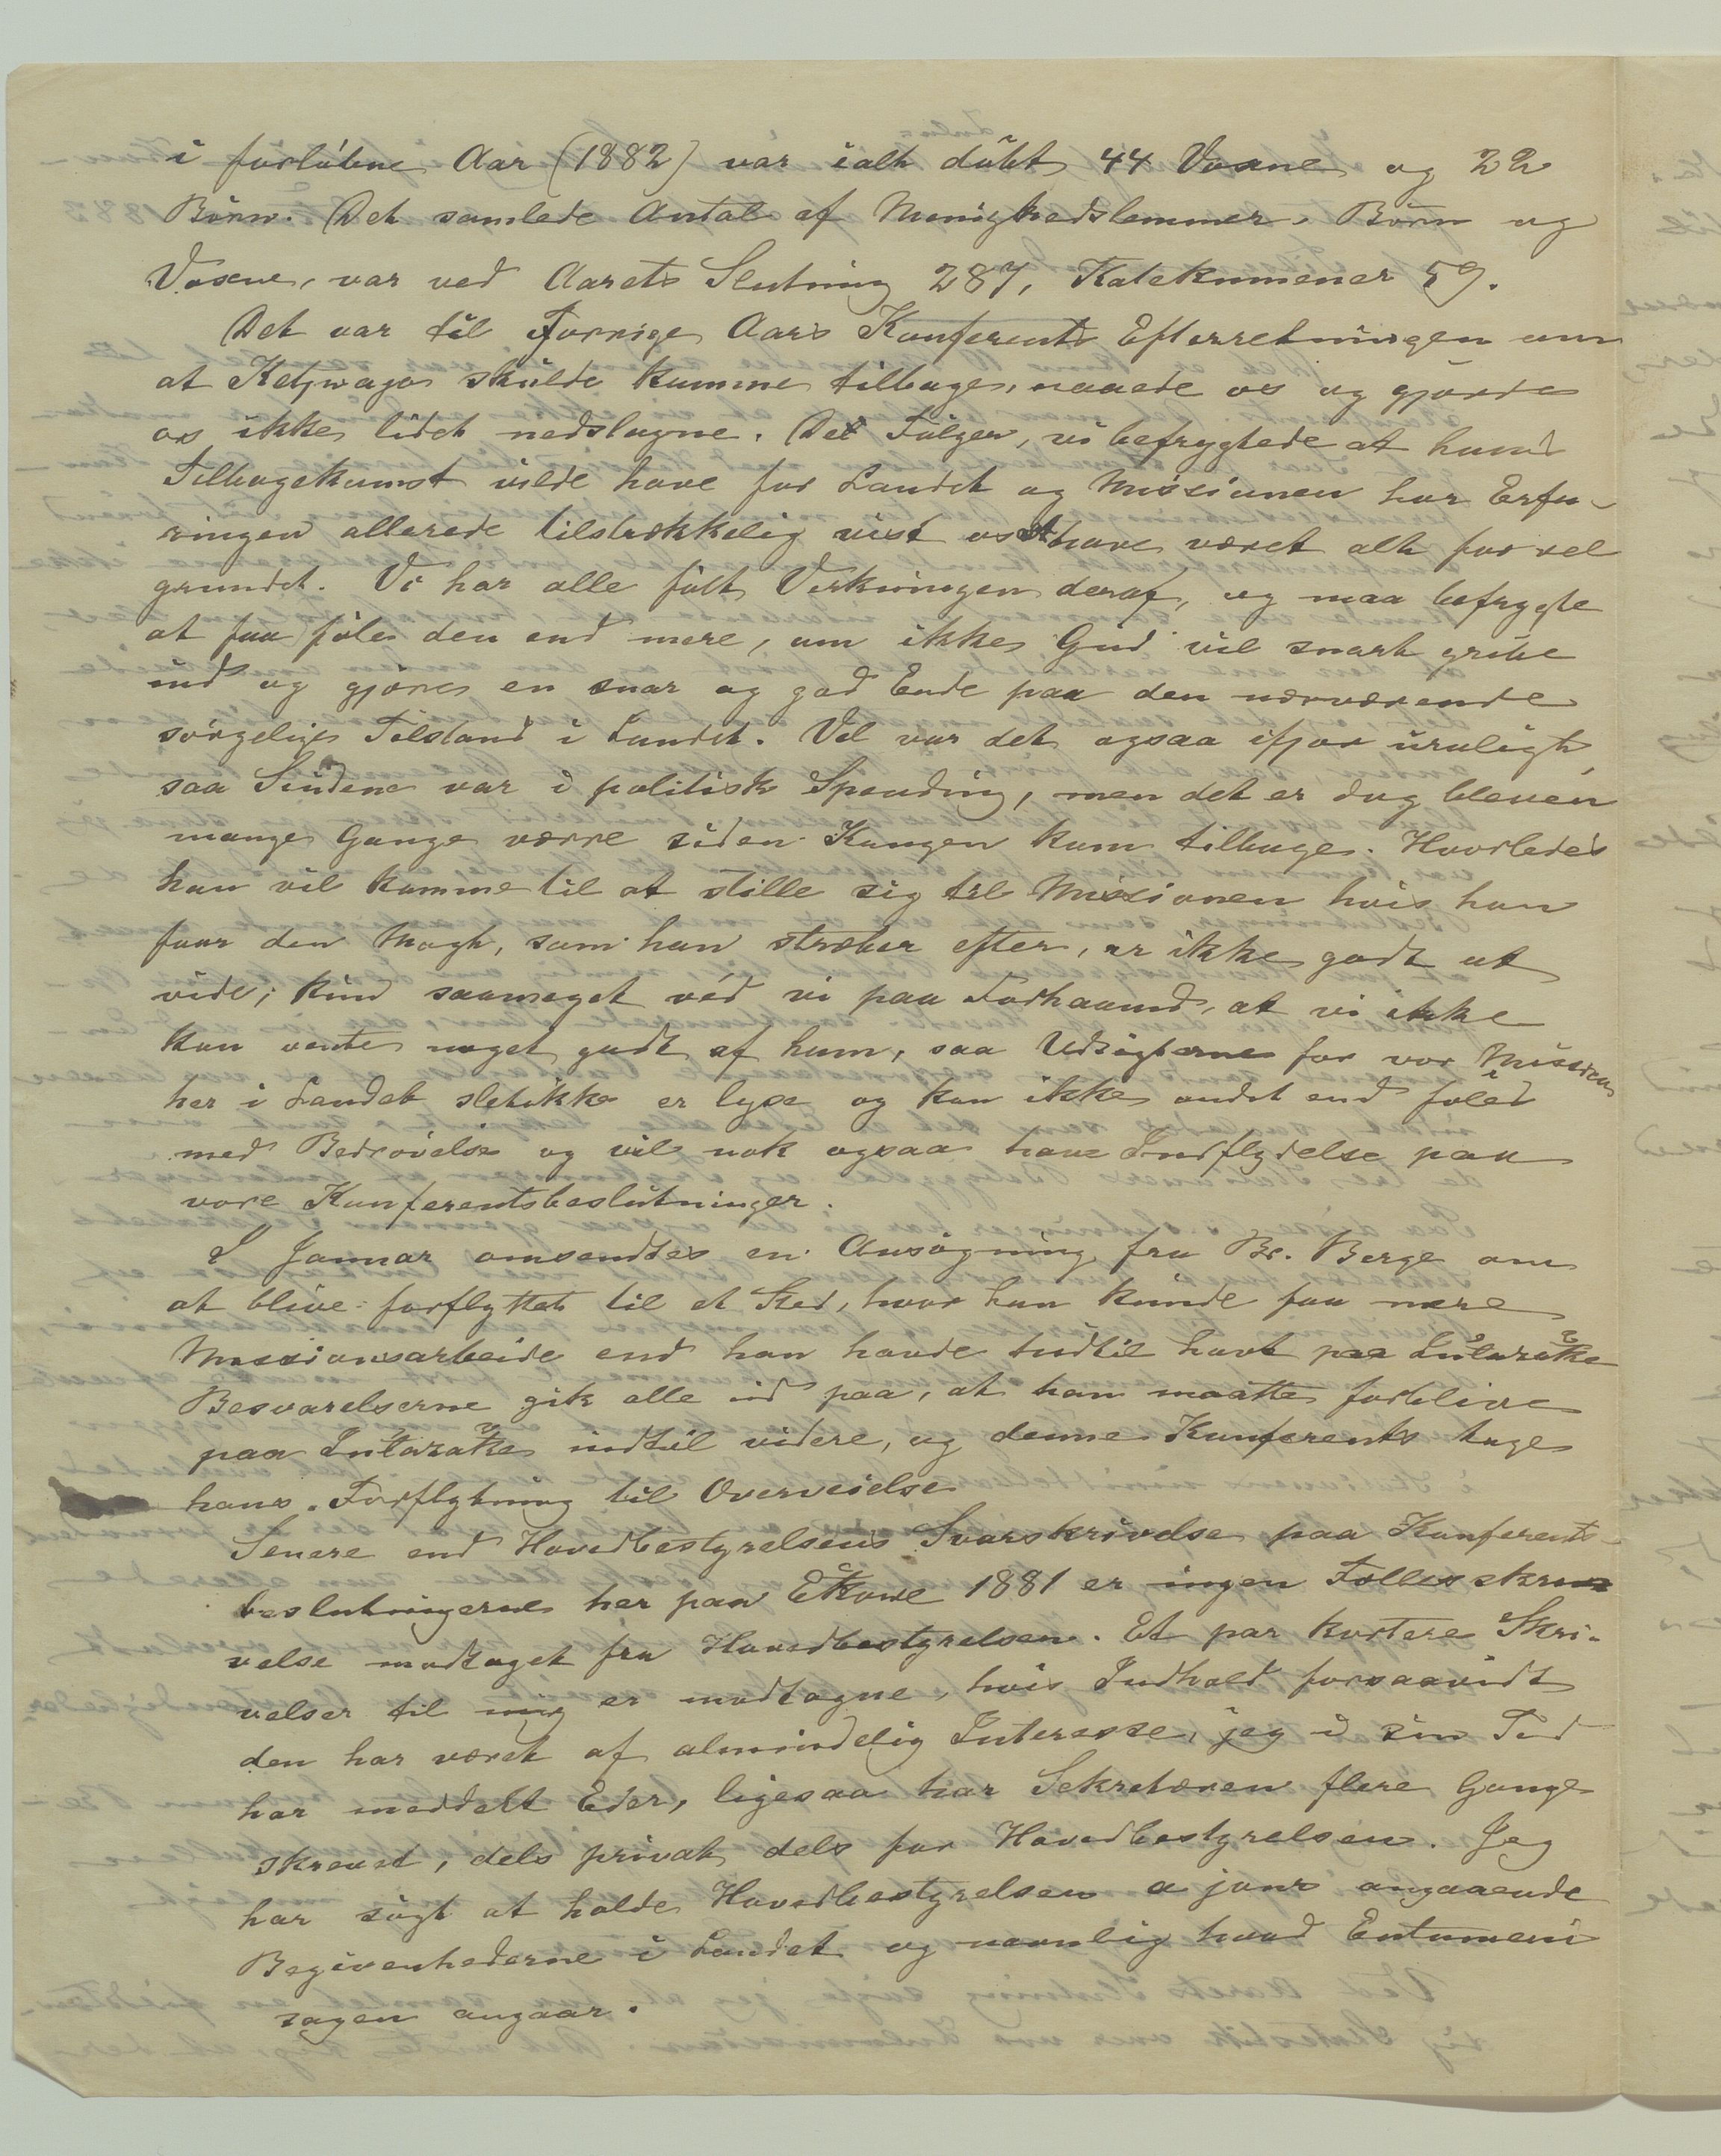 i forløbne Aar (1882) var ialt døbt 44 Voxne og 22
Børn. Det samlede Antal af Menighedslemmer, Børn og
Voxne, var ved Aarets Slutning 287, Katekumener 59.
Det var til Forrige Aars Konferents Efterretningen om
at Ketjwayo skulde komme tilbage, naaede os og gjorde
os ikke lidet nedslagne. De Følger, vi befrygtede at hans
Tilbagekomst vilde have for Landet og Missionen har Erfa-
ringen allerede tilstrækkelig vist os at have været alt for vel
grundet. Vi har alle følt Virkningen deraf, og maa befrygte
at faa føle den end mere, om ikke Gud vil snart gribe
ind og gjøre en snar og god Ende paa den nærværende
sørgelige Tilstand i Landet. Vel var det ogsaa ifjor uroligt,
saa Sindene var i politisk Spending, men det er dog bleven
mange Gange værre siden Kongen kom tilbage. Hvorledes
han vil komme til at stille sig til Missionen hvis han
faar den Magt, som han stræber efter, er ikke godt at
vide; kun saameget véd vi paa Forhaand, at vi ikke
kan vente noget godt af ham, saa Udsigterne for vor Mission
her i Landet sletikke er lyse og kan ikke andet end føles
med Bedrøvelse og vil nok ogsaa have Indflydelse paa
vore Konferentsbeslutninger.
I Januar omsendtes en Ansøgning fra Br. Berge om
at blive forflyttet til et Sted, hvor han kunde faa mere
Missionsarbeide end han havde hidtil havt paa
Besvarelserne gik alle ind paa, at han maatte forblive
paa indtil videre, og denne Konferents tage
hans Forflytning til Overveielse
Senere end Hovedbestyrelsens Svarskrivelse paa Konferents-
beslutningerne her paa Ekowe 1881 er ingen Fællesskri
velse modtaget fra Hovedbestyrelsen. Et par kortere Skri-
velser til mig er modtagne, hvis Indhold forsaavidt
den har været af almindelig Interesse, jeg i sin Tid
har meddelt Eder, ligesaa har Sekretæren flere Gange
skrevet, dels privat, dels for Hovedbestyrelsen. Jeg
har søgt at holde Hovedbestyrelsen a jour angaaende
Begivenhederne i Landet og navnlig hvad Entumeni
sagen angaar.